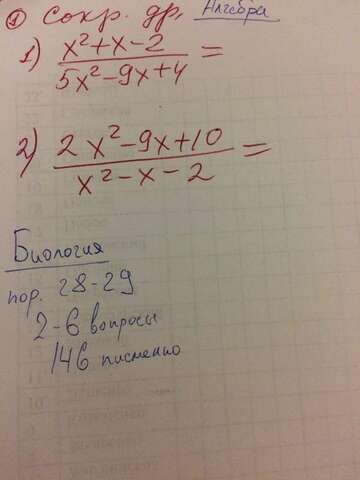 ① Сокр. др, Алгебра
1) x²+x-2 / 5x²-9x+4 =
2) 2x²-9x+10 / x²-x-2 =
Биология
пор. 28-29
2-6 вопросы
146 писменно